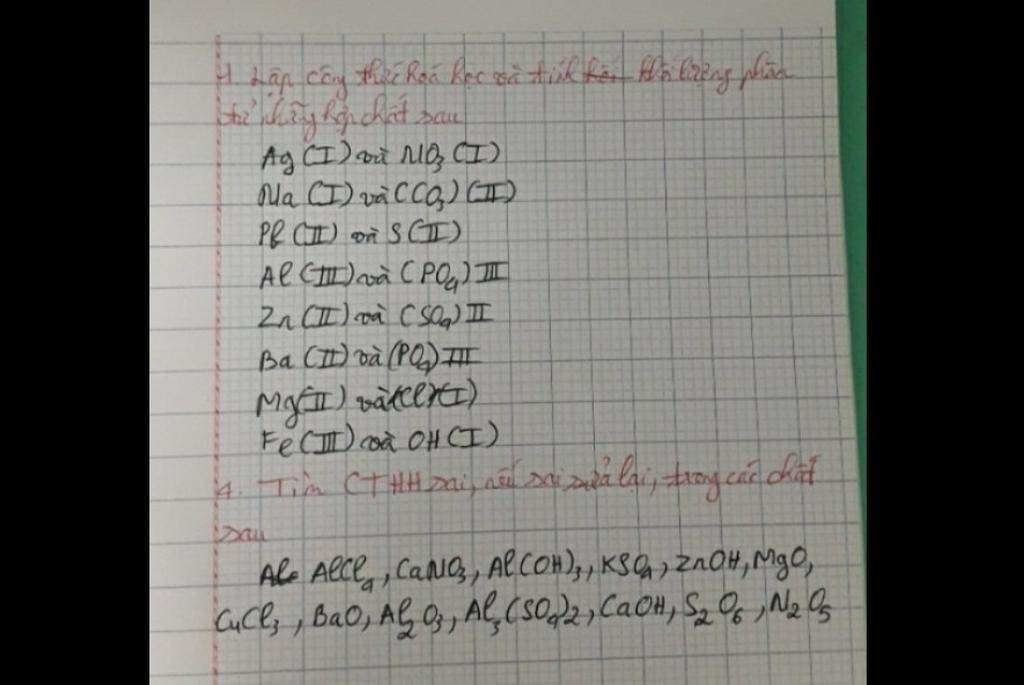 1. Lập công thức hoá học và tính khối lượng phân
tử những hợp chất sau
Ag (I) và NO3 (I)
Na (I) và (CO3) (II)
Pb (II) và S (II)
Al (III) và (PO4) III
Zn (II) và (SO4) II
Ba (II) và (PO4) III
Mg (II) và (Cl) (I)
Fe (III) và OH (I)
4. Tìm CTHH sai, nếu sai sửa lại, trong các chất
sau
AlCl4, CaNO3, Al(OH)3, KSO4, ZnOH, MgO,
CuCl3, BaO, Al2O3, Al3(SO4)2, CaOH, S2O6, N2O5